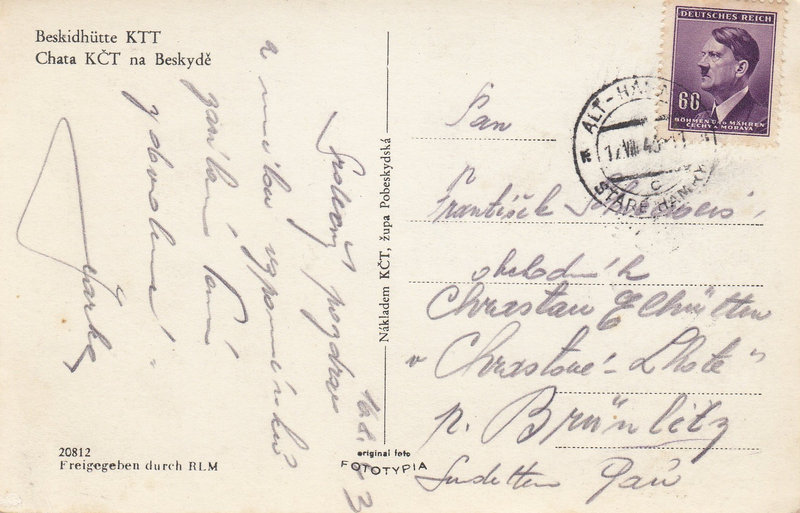 Beskidhütte KTT
Chata KČT na Beskydě
Srdečný pozdrav
a milou vzpomínku
zasílám Vám
z dovolené
Jarka
16.8.43
20812
Freigegeben durch RLM
Nákladem KČT, župa Pobeskydská
original foto
FOTOTYPIA
DEUTSCHES REICH
60
BÖHMEN u. MÄHREN
ČECHY a MORAVA
ALT-HAM
STARÉ HAMRY
c
Pan
p
František
obchodník
Chrastau Elhütten
v Chrastové-Lhotě
p. Brünlitz
Sudetten Gau